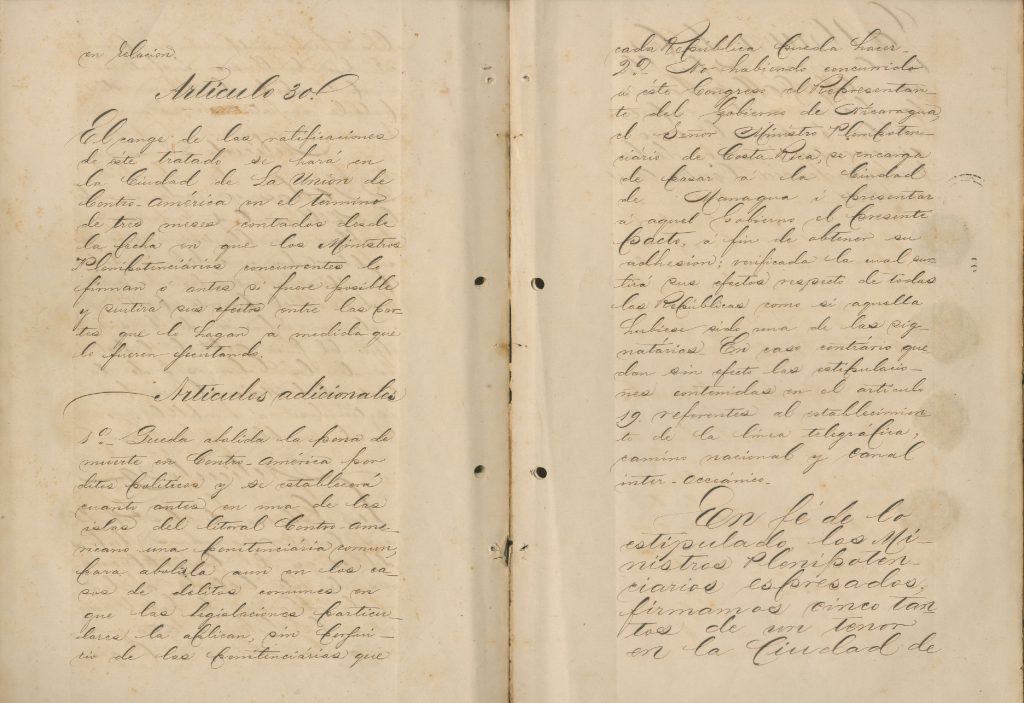 en relacion.
Artículo 30.
El cange de las ratificaciones
de éste tratado se hará en
la Ciudad de La Union de
Centro-América en el término
de tres meses contados desde
la fecha en que los Ministros
Plenipotenciários concurrentes lo
firman ó antes si fuere posible
y surtirá sus efectos entre las par-
tes que lo hagan á medida que
lo fueren ejecutando.
Artículos adicionales
1º. Queda abolida la pena de
muerte en Centro-América por
ditos politicos y se establecerá
cuanto antes en una de las
islas del litoral Centro-ame-
ricano una penitenciária comun,
para abolirla aun en los ca-
sos de delitos comunes en
que las legislaciones particu-
lares la aplican, sin perjui-
cio de las penitenciárias que
cada República pueda hacer.
2º. No habiendo concurrido
á éste Congreso el Representan-
te del Gobierno de Nicaragua,
el Señor Ministro Plenipoten-
ciário de Costa Rica, se encarga
de pasar a la Ciudad
de Managua i presentar
á aquel Gobierno el presente
pacto, á fin de obtener su
adhesion; verificada la cual sur-
tirá sus efectos respecto de todas
las Repúblicas como si aquella
hubiese sido una de las sig-
natárias. En caso contrário que
dan sin efecto las estipulacio-
nes contenidas en el artículo
19. referentes al establecimien-
to de la línea telegráfica,
camino nacional y canal
inter-occeánico.
En fé de lo
estipulado los Mi-
nistros Plenipoten-
ciarios espresados,
firmamos cinco tan
tos de un tenor
en la Ciudad de